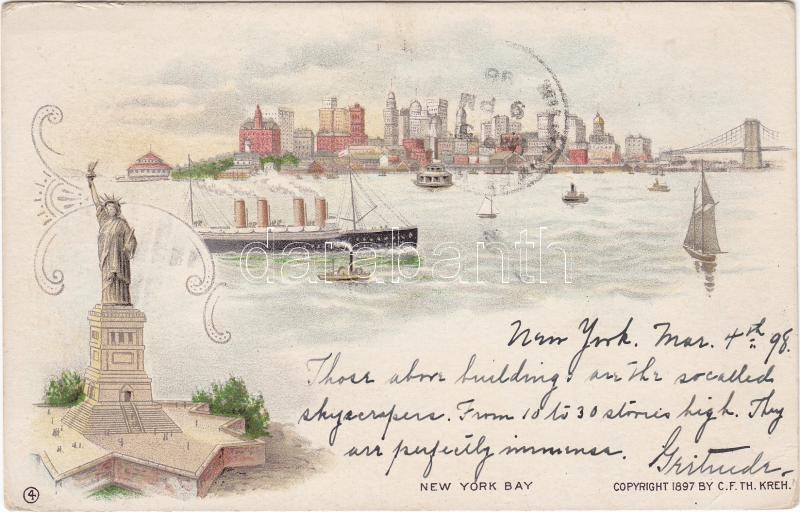 New York. Mar. 4th 98.
Those above buildings are the socalled
skyscrapers. From 10 to 30 stories high. They
are perfectly immense. Gertrude.
4
NEW YORK BAY
COPYRIGHT 1897 BY C. F. TH. KREH.
darabanth